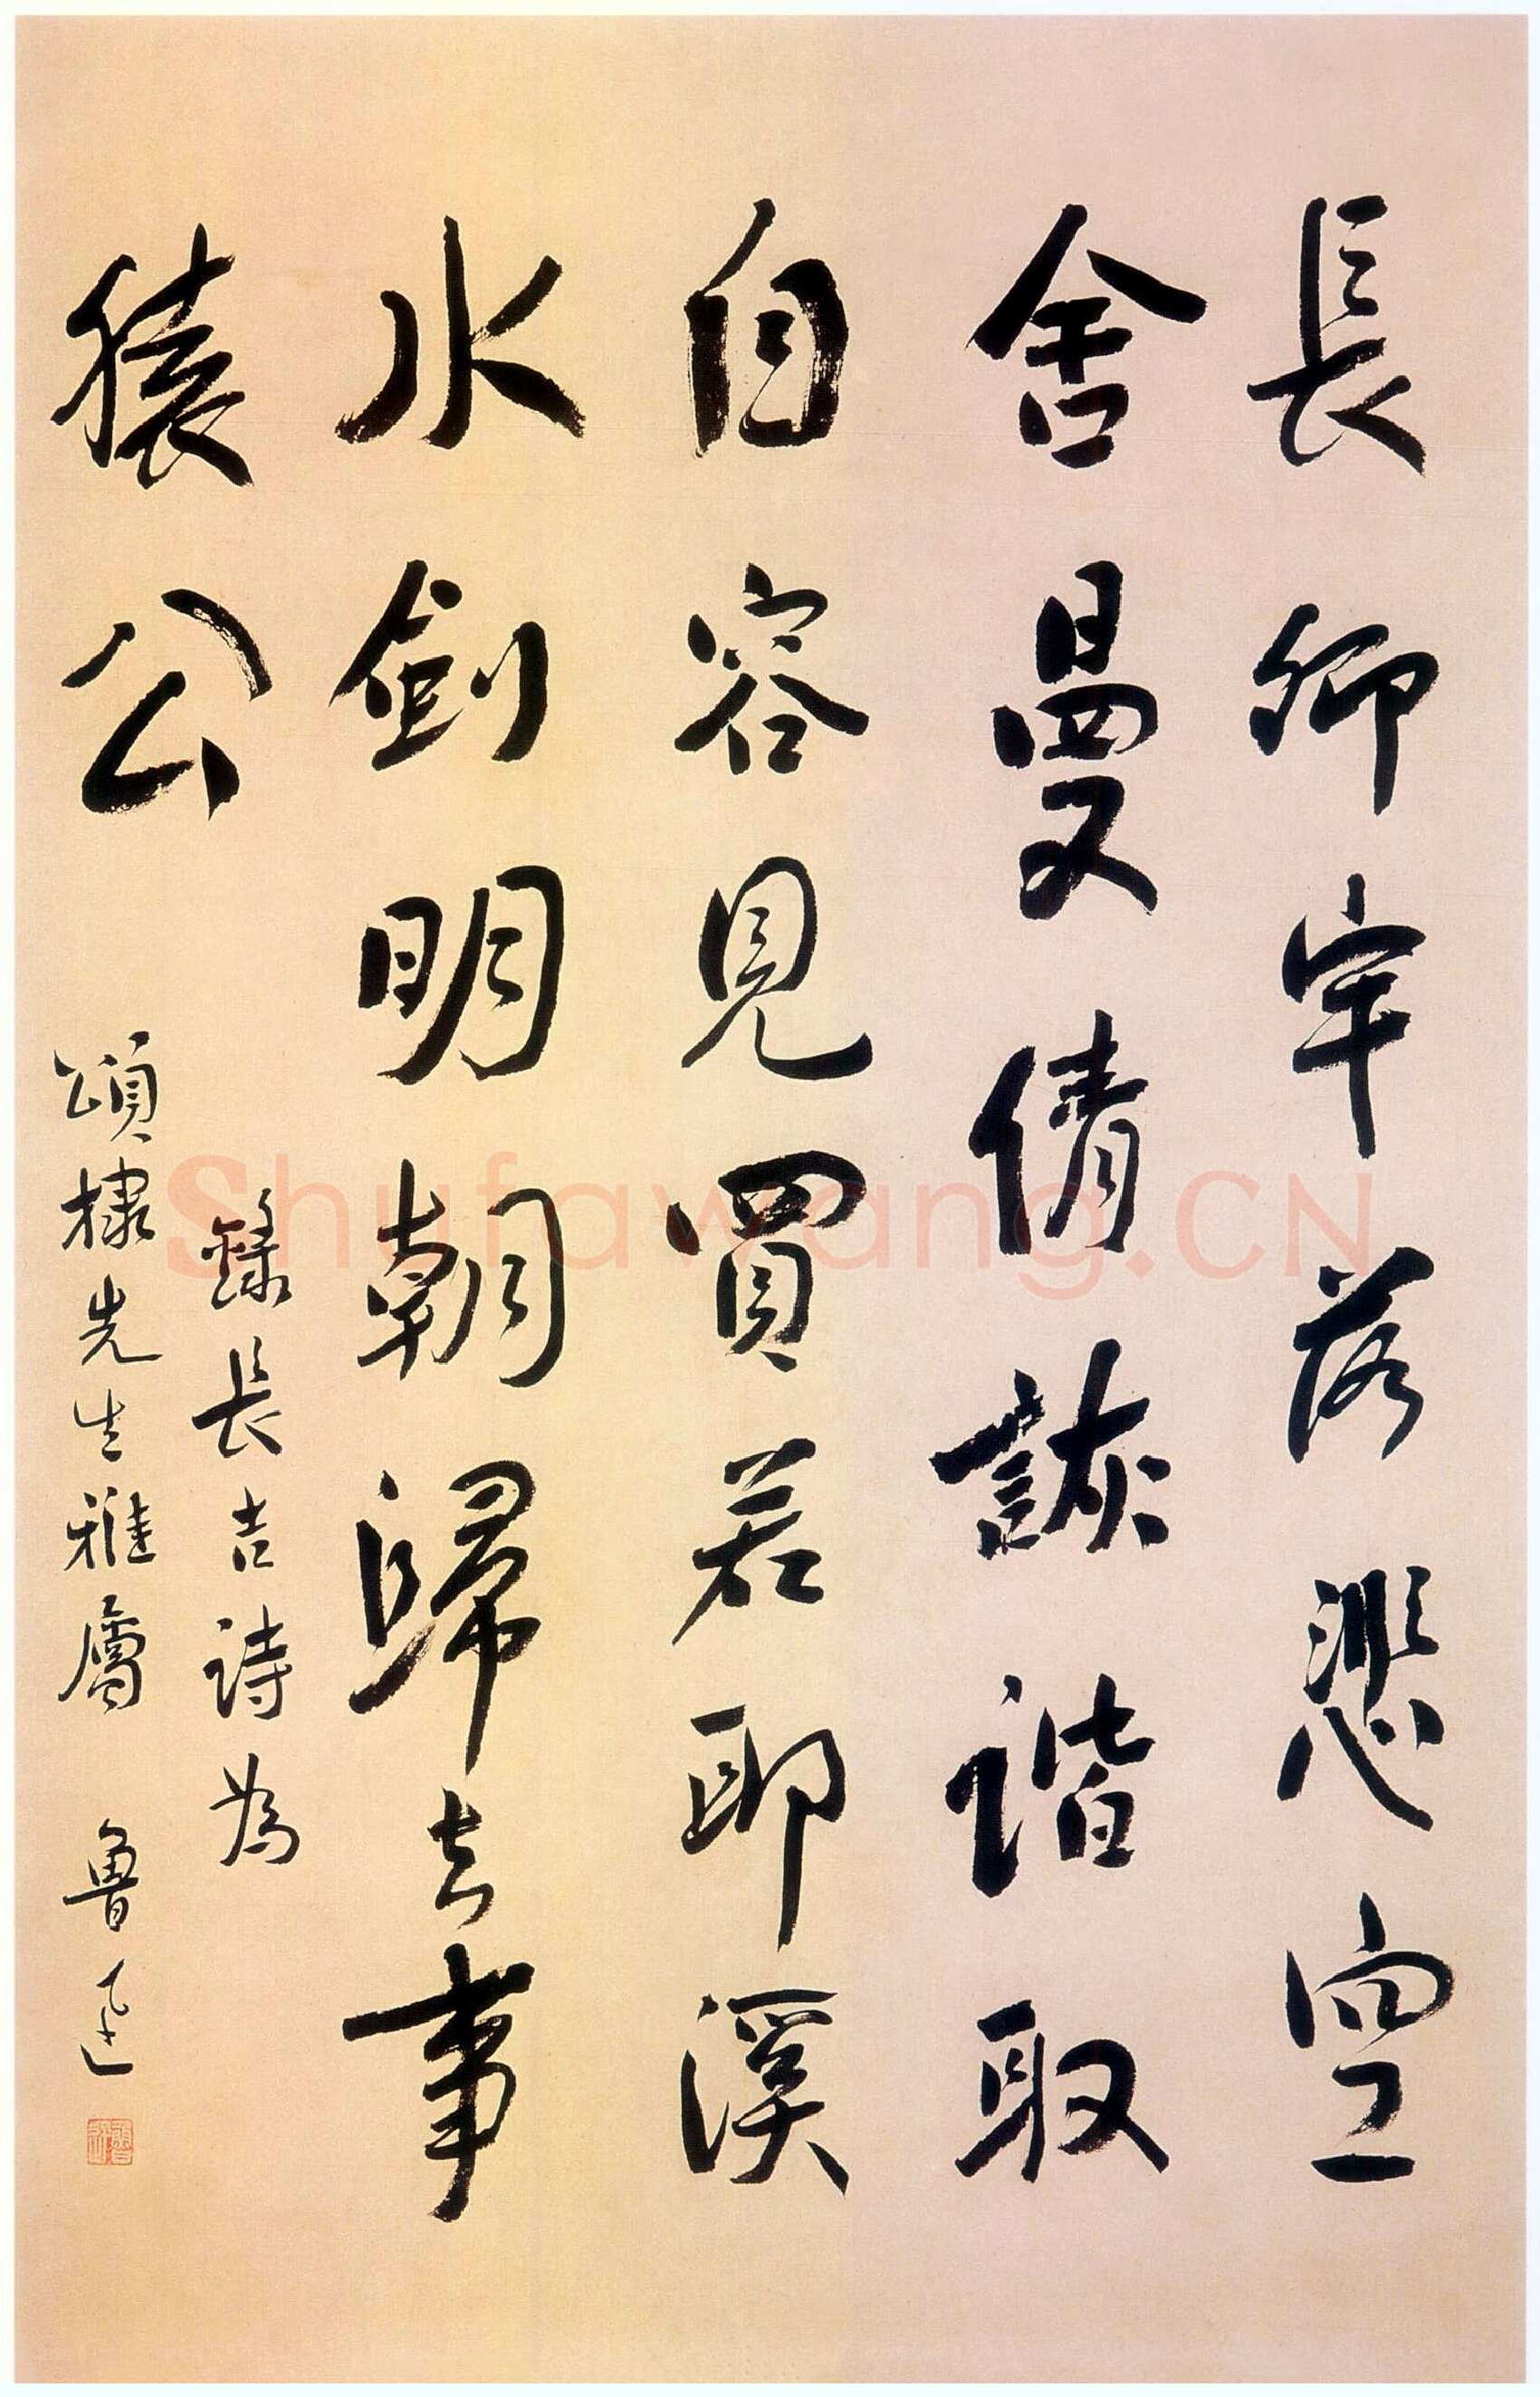 長卿牢落悲空
舍曼倩詼諧取
自容見買若耶溪
水劍明朝歸去事
猿公
錄長吉詩為
頌棣先生雅屬 魯迅
Shufawang.CN